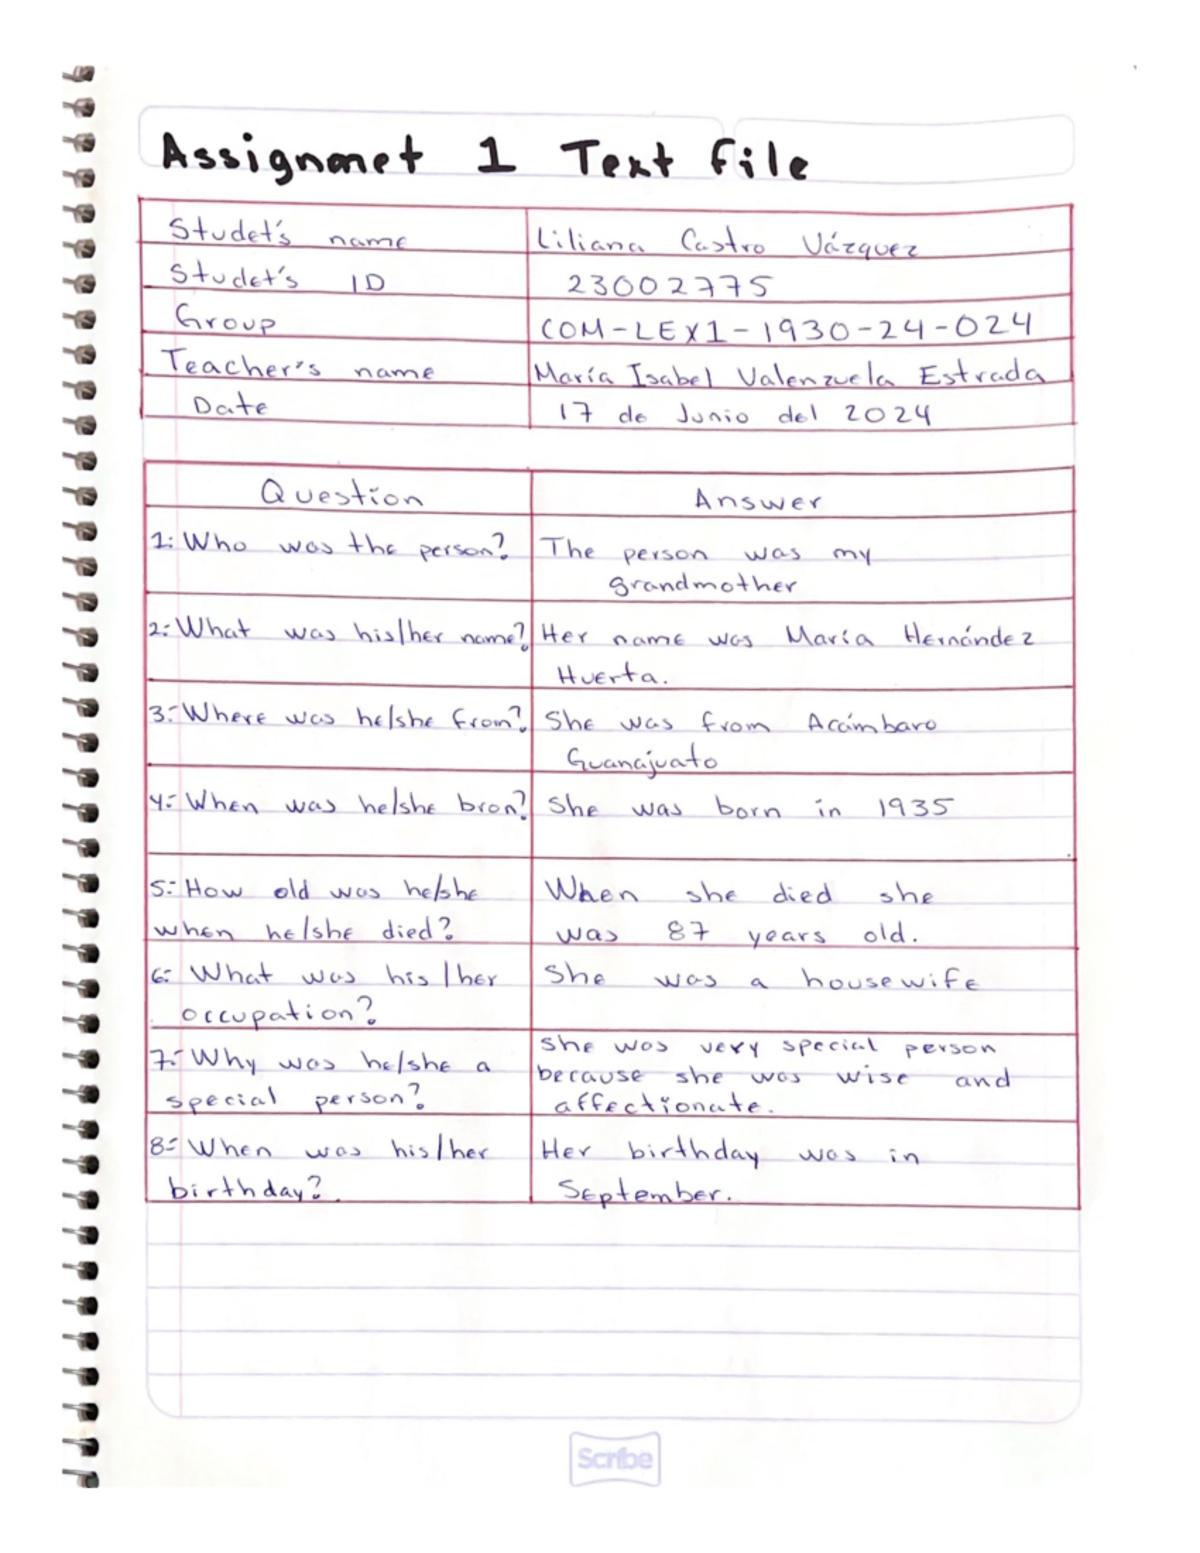 Assignmet 1 Text file
Studet's name Liliana Castro Vázquez
Studet's ID 23002775
Group COM-LEX1-1930-24-024
Teacher's name María Isabel Valenzuela Estrada
Date 17 de Junio del 2024
Question Answer
1: Who was the person? The person was my
grandmother
2:- What was his/her name? Her name was María Hernández
Huerta.
3:- Where was he/she from? She was from Acámbaro
Guanajuato
4:- When was he/she bron? She was born in 1935
5:- How old was he/she When she died she
when he/she died? was 87 years old.
6:- What was his/her She was a housewife
occupation?
7:- Why was he/she a She was very special person
special person? because she was wise and
affectionate.
8:- When was his/her Her birthday was in
birthday? September.
Scribe